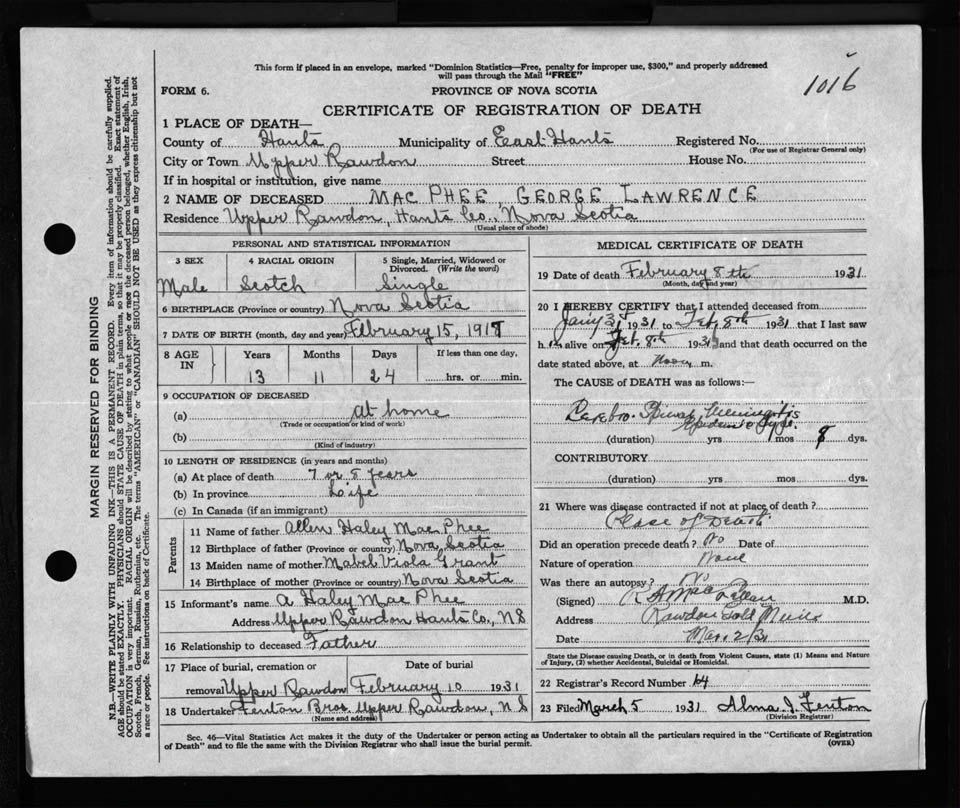 This form if placed in an envelope, marked "Dominion Statistics—Free, penalty for improper use, $300," and properly addressed
will pass through the Mail "FREE"
1016
FORM 6.
PROVINCE OF NOVA SCOTIA
CERTIFICATE OF REGISTRATION OF DEATH
1 PLACE OF DEATH—
County of Hants Municipality of East Hants Registered No.
(For use of Registrar General only)
City or Town Upper Rawdon Street House No.
If in hospital or institution, give name
2 NAME OF DECEASED MAC PHEE, GEORGE LAWRENCE
Residence Upper Rawdon, Hants Co., Nova Scotia
(Usual place of abode)
PERSONAL AND STATISTICAL INFORMATION
3 SEX 4 RACIAL ORIGIN 5 Single, Married, Widowed or
Divorced. (Write the word)
Male Scotch Single
6 BIRTHPLACE (Province or country) Nova Scotia
7 DATE OF BIRTH (month, day and year) February 15, 1917
8 AGE IN Years Months Days If less than one day,
13 11 24 hrs. or min.
9 OCCUPATION OF DECEASED
(a) at home
(Trade or occupation or kind of work)
(b)
(Kind of industry)
10 LENGTH OF RESIDENCE (in years and months)
(a) At place of death 7 or 8 years
(b) In province Life
(c) In Canada (if an immigrant)
Parents
11 Name of father Allen Haley Mac Phee
12 Birthplace of father (Province or country) Nova Scotia
13 Maiden name of mother Mabel Viola Grant
14 Birthplace of mother (Province or country) Nova Scotia
15 Informant's name A Haley Mac Phee
Address Upper Rawdon Hants Co., N S
16 Relationship to deceased Father
17 Place of burial, cremation or Date of burial
removal Upper Rawdon February 10 1931
18 Undertaker Fenton Bros Upper Rawdon, N S
(Name and address)
MEDICAL CERTIFICATE OF DEATH
19 Date of death February 8th 1931
(Month, day and year)
20 I HEREBY CERTIFY that I attended deceased from
Jany 31 1931 to Feb. 8th 1931 that I last saw
h im alive on Feb. 8th 1931 and that death occurred on the
date stated above, at Noon m.
The CAUSE of DEATH was as follows:—
Cerebro. Spinal Meningitis
Epidemic Type.
(duration) yrs mos 8 dys.
CONTRIBUTORY
(duration) yrs. mos dys.
21 Where was disease contracted if not at place of death?
Place of Death
Did an operation precede death? No Date of
Nature of operation None
Was there an autopsy? No
(Signed) M.D.
Address Rawdon Gold Mines
Date Mar. 2/31
State the Disease causing Death, or in death from Violent Causes, state (1) Means and Nature
of Injury, (2) whether Accidental, Suicidal or Homicidal.
22 Registrar's Record Number 64
23 Filed March 5 1931 Alma J. Fenton
(Division Registrar)
Sec. 46—Vital Statistics Act makes it the duty of the Undertaker or person acting as Undertaker to obtain all the particulars required in the "Certificate of Registration
of Death" and to file the same with the Division Registrar who shall issue the burial permit.
(OVER)
MARGIN RESERVED FOR BINDING
N.B.—WRITE PLAINLY WITH UNFADING INK—THIS IS A PERMANENT RECORD. Every item of information should be carefully supplied.
AGE should be stated EXACTLY. PHYSICIANS should STATE CAUSE OF DEATH in plain terms, so that it may be properly classified. Exact statement of
OCCUPATION is very important. RACIAL ORIGIN will be described by stating to what people or race the deceased person belonged, whether English, Irish,
Scotch, French, German, Russian, Ruthenian, etc. The terms "AMERICAN" or "CANADIAN" SHOULD NOT BE USED as they express citizenship but not
a race or people. See instructions on back of Certificate.